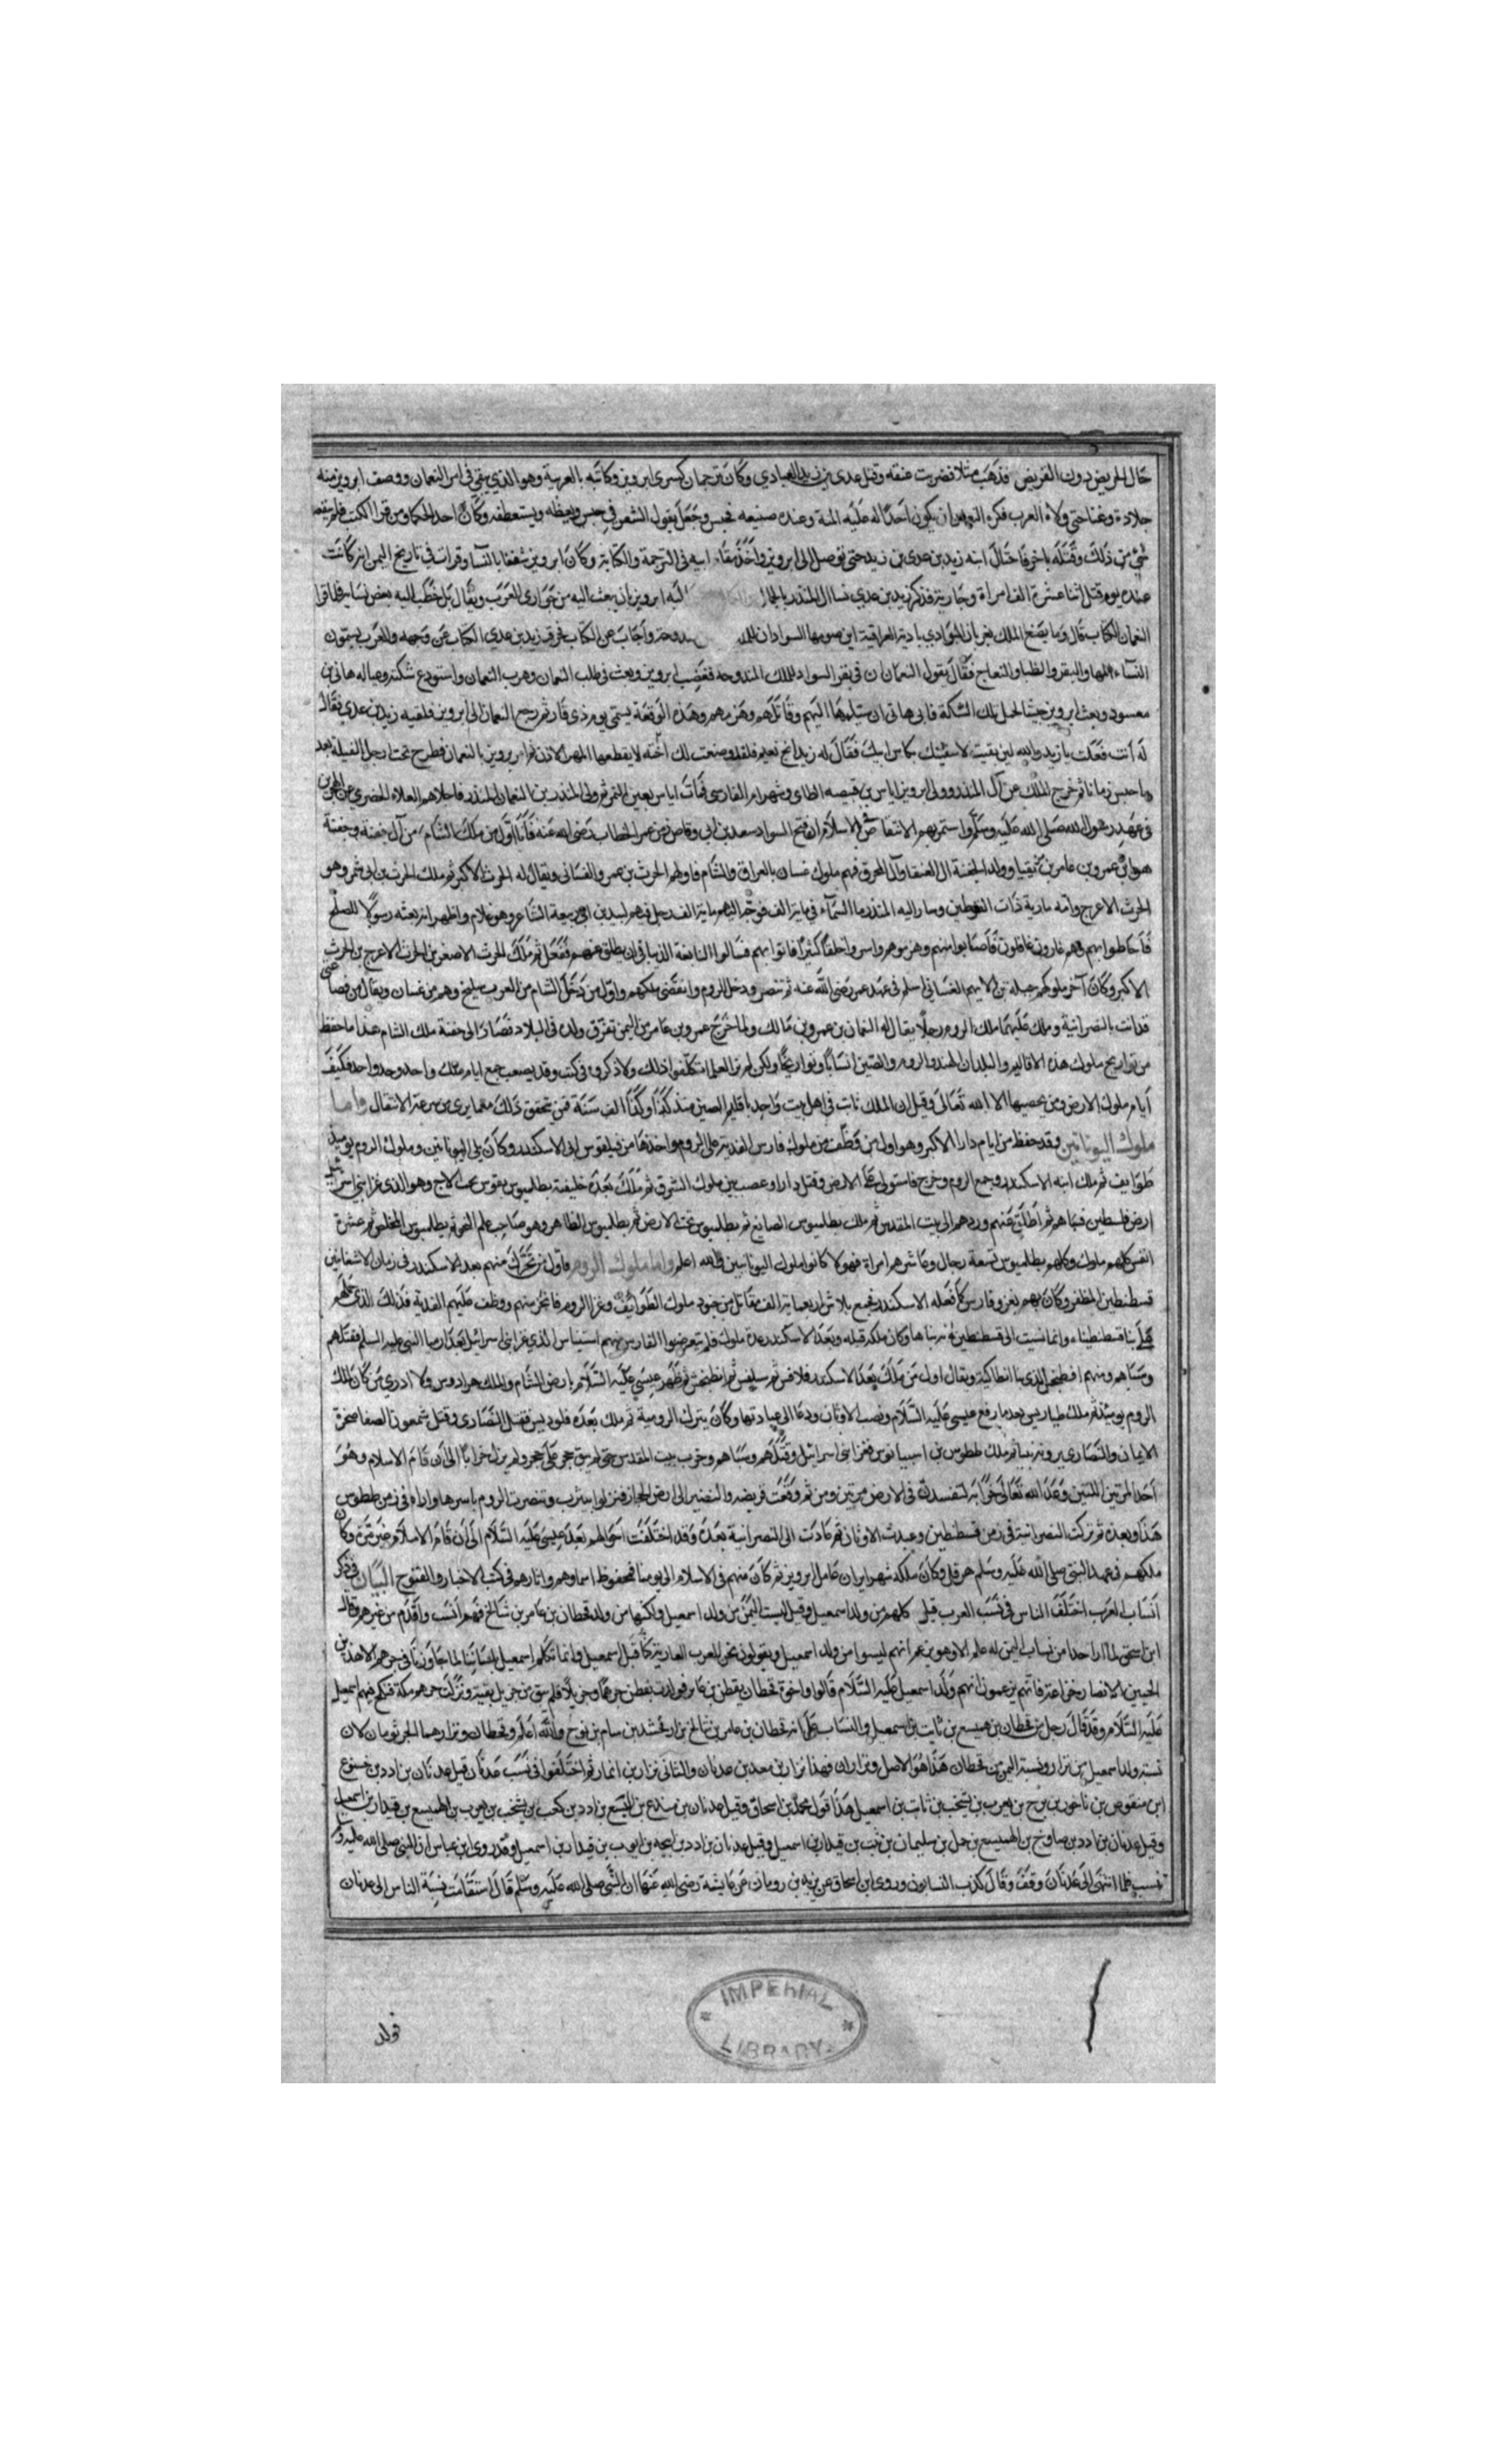 حال الجريض دون القريض فذهب مثلا فضربت عنقه وقتل عدى بن زيد العبادي وكان ترجمان كسرى ابرويز وكاتبه بالعربية وهو الذي في امر النعمان ووصف ابرويز منه
جلادة وغنا حتى ولاه العرب فكره النعمان ان يكون احدا له عليه المنة وعنده صنيعه فحبس وجعل يقول الشعر في حبس ويعظه ويستعطفه وكان احد الحكما ومن قرا الكتب فلم
شئ من ذلك وقتله باخرة فاحتال ابنه زيد بن عدى بن زيد حتى توصل الى ابرويز واخذ مقام ابيه في الترجمة والكتابة وكان ابرويز شغفا بالنسا وقرات في تاريخ اليمن انه كانت
عنده يوم قتل اثنا عشرة الف امراة وجارية فذكر زيد بن عدي نسا ال المنذر بالجمال اليه ابرويز بان يبعث اليه من جواري العرب ويقال بل خطب اليه بعض نسايه فلما قرا
النعمان الكتاب قال وما يصنع الملك بادية العراقية اين هو من مها السواد ان للملك مندوحة واجاب عن الكتاب فحرف زيد بن عدي الكتاب عن وجهه والعرب يسمون
النساء المها والبقر والظبا والنعاج فقال يقول النعمان ان في بقر السواد للملك المندوحة فغضب ابرويز وبعث في طلب النعمان وهرب النعمان واستودع شكته وعياله هانى بن
مسعود وبعث ابرويز جيشا لحمل تلك الشكة فابى هانى ان يسلمها اليهم وقاتلهم وهزمهم وهذه الوقعة يسمى يوم ذي قار ثم رجع النعمان الى ابرويز فلقيه زيد بن عدي فقال
له انت فعلت يا زيد والله لين بقيت لاسقينك بكاس ابيك فقال له زيد انج نعيم فلقد وضعت لك اخيه لا يقطعها المهر الارن فامر ابرويز بالنعمان فطرح تحت ارجل الفيلة بعد
ما حبس زمانا ثم خرج الملك عن آل المنذر وولى ابرويز اياس بن قبيصه الطاى وشهرام الفارسى فمات اياس بعين التمر ثم ولى المنذر بن النعمان المنذر فاجلاهم العلاء الحضرمي عن البحرين
في عهد رسول الله صلى الله عليه وسلم واستمر بهم الانتقاض في الاسلام الى ان فتح السواد سعد بن ابي وقاص زمن عمر الخطاب رضى الله عنه فاما اول من ملك الشام من آل جفنة وجفنة
هو ابن عمرو بن عامر بن مزيقيا وولد لجفنة ال العنقا وآل المحرق فهم ملوك غسان بالعراق والشام فاولهم الحرث بن عمرو الغسانى ويقال له الحرث الاكبر ثم ملك الحرث بن ابى شمر وهو
الحرث الاعرج وامه مارية ذات القرطين وسار اليه المنذر ما السماء في ماية الف فوجه اليهم ماية الف رجل فيهم لبيد بن ابى ربيعة الشاعر وهو غلام واظهر انه بعثه رسولا للصلح
فاحاطوا بهم وهم غارون غافلون فاصابوا منهم وهزموهم واسروا خلقا كثيرا فاتوا بهم فسالوا النابغة الذبياني ان يطلق عنهم ففعل ثم ملك الحرث الاصغر بن الحرث الاعرج بن الحرث
الاكبر وكان آخر ملوكهم جبلة بن الايهم الغسانى اسلم في عهد عمر رضى الله عنه ثم تنصر ودخل الروم وانقضى ملكهم واول من دخل الشام من العرب سليح وهم من غسان ويقال من قضاعة
فدانت بالنصرانية وملك عليها ملك الروم رجلا يقال له النعمان بن عمرو بن مالك ولما خرج عمرو بن عامر من اليمن تفرق ولده في البلاد فصار الى جفنة ملك الشام هذا ما حفظ
من تواريخ ملوك هذه الاقاليم والبلدان للهند والروم والصين انسابا وتواريخا ولكن لم نر العلما تكلفوا ذلك ولا ذكروه في كتب وقد يصعب جمع ايام ملك واحد وحد واحد فكيف
ايام ملوك الارض ومن يحصيها الا الله تعالى وقيل ان الملك ثابت في اهل بيت واحد باقليم الصين منذ كذا وكذا الف سنة فمن تحقق ذلك مما يرى من سرعة الانتقال واما
ملوك اليونانيين وقد حفظ من ايام دارا الاكبر وهو اول من وظف من ملوك فارس الفدية على الروم واخذها من فيلقوس ابى الاسكندر وكان يلى اليونانين وملوك الروم يوميذ
طوايف ثم ملك ابنه الاسكندر وجمع الروم وخرج فاستولى على الارض وقتل دارا وعصب بين ملوك الشرق ثم ملك بعده خليفة بطلميوس وهو الذي غزا بنى اسرائيل
ارض فلسطين فسباهم ثم اطلق عنهم وردهم الى بيت المقدس ثم ملك بطلميوس الصانع ثم بطلميوس محب الارض ثم بطلميوس الظاهر وهو صاحب علم النجوم ثم بطلميوس المخلص ثم عشرة
انفس كلهم ملوك وكلهم بطلميوس تسعة رجال وعاشرهم امراة فهولا كانوا ملوك اليونانيين والله اعلم واما ملوك الروم فاول من تحرك منهم بعد الاسكندر في زمان الاشغانين
قسطنطين المظفر وكان يهم بغزو فارس كما فعله الاسكندر فجمع بلاش اربعماية الف مقاتل من جنود ملوك الطوائف وغزا الروم فاثخن منهم ووظف عليهم الفدية فذلك الذي حملهم
على بنا قسطنطيناء وانما نسبت الى قسطنطين وكان ملكه قبله وبعد الاسكندر عدة ملوك فلم يتعرضوا الفارس منهم اسيناس الذي غزا بنى اسرائيل بعد ارميا النبي عليه السلم فقتلهم
وسباهم ومنهم الذي بنا انطاكية ويقال اول من ملك بعد الاسكندر فلاقس ثم سليقس ثم انطيخس ثم ظهر عيسى عليه السلام بارض الشام والملك هرادوس ولا ادري من كان ملك
الروم يوميذ ثم ملك طباريس بعد ما رفع عيسى عليه السلام ونصب الاوثان ودعا الى عبادتها وكان ينزل الرومية ثم ملك بعده فلوديس فقتل النصارى وقتل شمعون الصفا صخرة
الايمان والنصارى ثم ملك ططوس بن اسبيانوس فغزا بنى اسرائيل وقتلهم وسباهم وخرب بيت المقدس حتى لم يبق حجر على حجر ولم يزل خرابا الى ان قام الاسلام وهو
احد المرتين اللتين وعد الله تعالى خرابه لتفسدن في الارض مرتين ومن ثم وقعت قريضه والنضير الى ارض الحجاز فنزلوا بيثرب وتنصرت الروم باسرها في زمن ططوس
هذا وبعده ثم تركت النصرانية في زمن قسطنطين وعبدت الاوثان ثم عادت الى النصرانية بعده وقد اختلفت احوالهم بعد عيسى عليه السلام الى ان قام الاسلام غير مرة وكان
ملكهم في عهد النبي صلى الله عليه وسلم هرقل وكان ملكه شهر ايران عامل ابرويز ثم كان منهم في الاسلام الى يومنا محفوظ اسماوهم واثارهم في كتب الاخبار والفتوح البيان في ذكر
انساب العرب اختلف الناس في نسب العرب قيل كلهم من ولد اسمعيل وقيل ليست اليمن من ولد اسمعيل ولكنها من ولد قحطان بن عامر بن شالخ فهم انسب واقدم من غيرهم وقال
ابن اسحق لما ار احدا من نساب اليمن له علم الا وهو يزعم انهم ليسوا من ولد اسمعيل ويقولون نحن العرب العاربة كنا قبل اسمعيل وانما تكلم اسمعيل بلساننا لما جاورنا في جرهم الا هذين
الحيين الانصار وخزاعة فانهم يزعمون انهم ولد اسمعيل عليه السلام قالوا واخوة قحطان يقطن بن عابر فولدت يقطن جرهم وجزيلا فلم يبق من جزيل بقية ونزلت جرهم مكة فنكح فيهم اسمعيل
عليه السلام وقد قال رجل بن قحطان بن هميسع بن ثابت بن اسمعيل والنساب على انه قحطان بن عامر بن شالخ بن ارفخشد بن سام بن نوح والله اعلم وقحطان ونزار هما الجرثومتان لان
نسبة ولد اسمعيل من نزار ونسبة اليمن من قحطان هذا هو الاصل ونزاران فهذا نزار بن معد بن عدنان والثانى نزار بن انمار ثم اختلفوا في نسب عدنان قيل عدنان بن ادد بن
ابن منقوص بن ناحور بن برح بن يعرب بن يشخب بن ثابت بن اسمعيل هذا قول محمد بن اسحاق وقيل عدنان بن ميدع بن اليسع بن ادد بن كعب بن يشخب بن يعرب بن الهميسع بن قيدار بن اسمعيل
وقيل عدنان بن ادد بن صاوخ بن الهميسع بن حمل بن سليمان بن نبت بن قيدار بن اسمعيل وقيل عدنان بن ادد بن ايجه بن ايوب بن قيدار بن اسمعيل وقد روى ابن عباس ان النبي صلى الله عليه و
نسب فلما انتهى الى عدنان وقف وقال كذب النسابون وروى ابن اسحاق عن يزيد بن رومان عن عايشة رضى الله عنها ان النبي صلى الله عليه وسلم قال استقامت نسبة الناس الى عدنان
IMPERIAL
LIBRARY